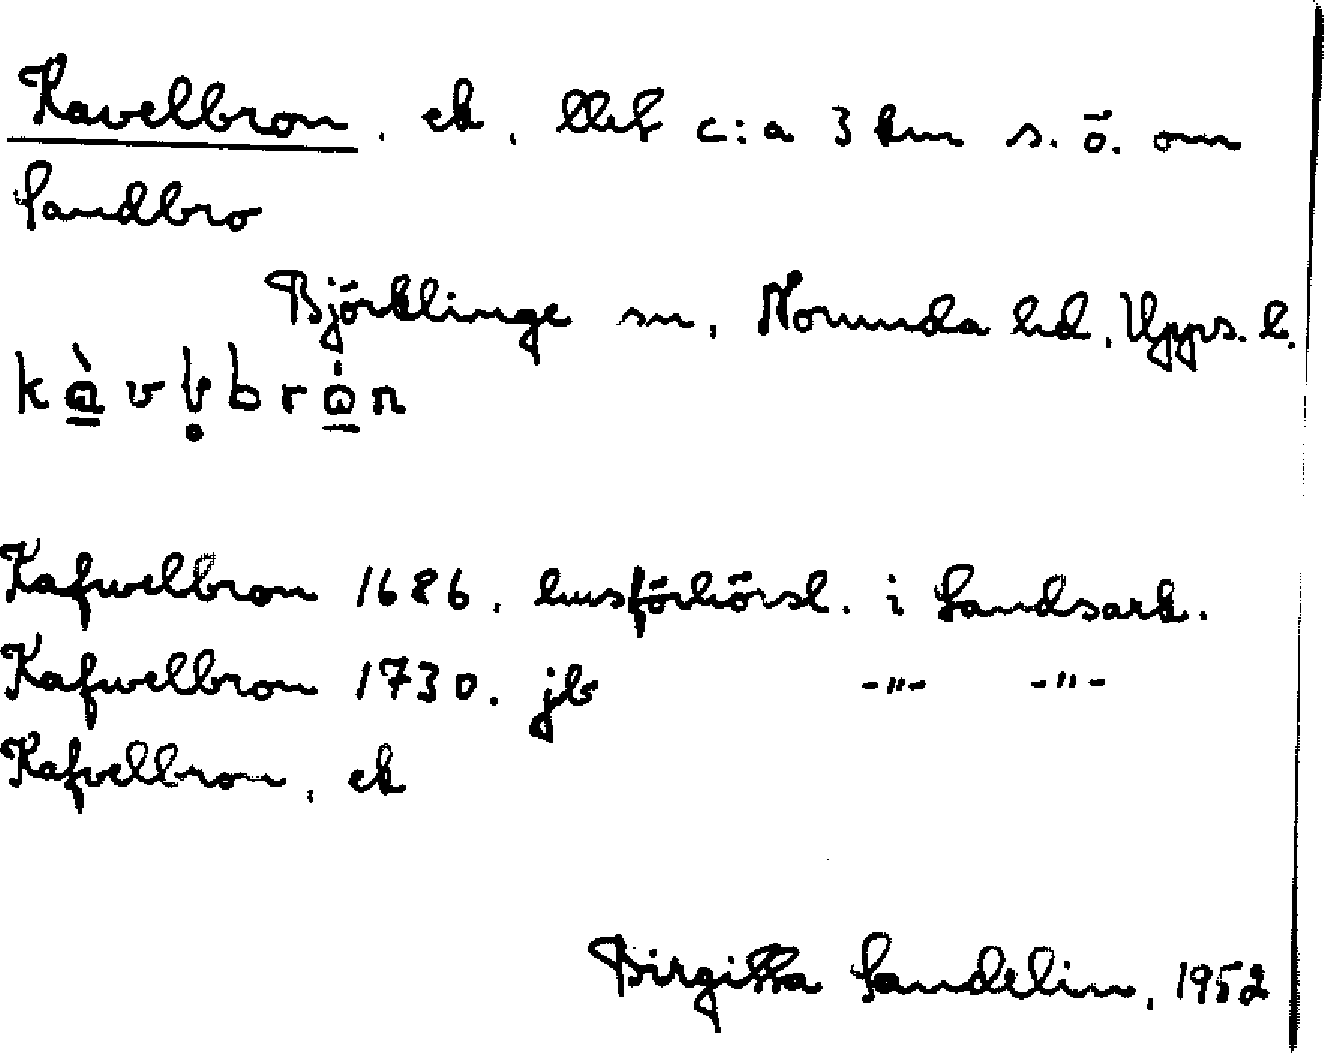 Kavelbron, ek, lht c:a 3 km s. ö. om
Sandbro
Björklinge sn, Norunda hd, Upps. l.
kàvḷbrȧ̀n
Kafwelbron 1686, husförhörsl. i Landsark.
Kafwelbron 1730. jb -"- -"-
Kafvelbron, ek
Birgitta Sandelin, 1952